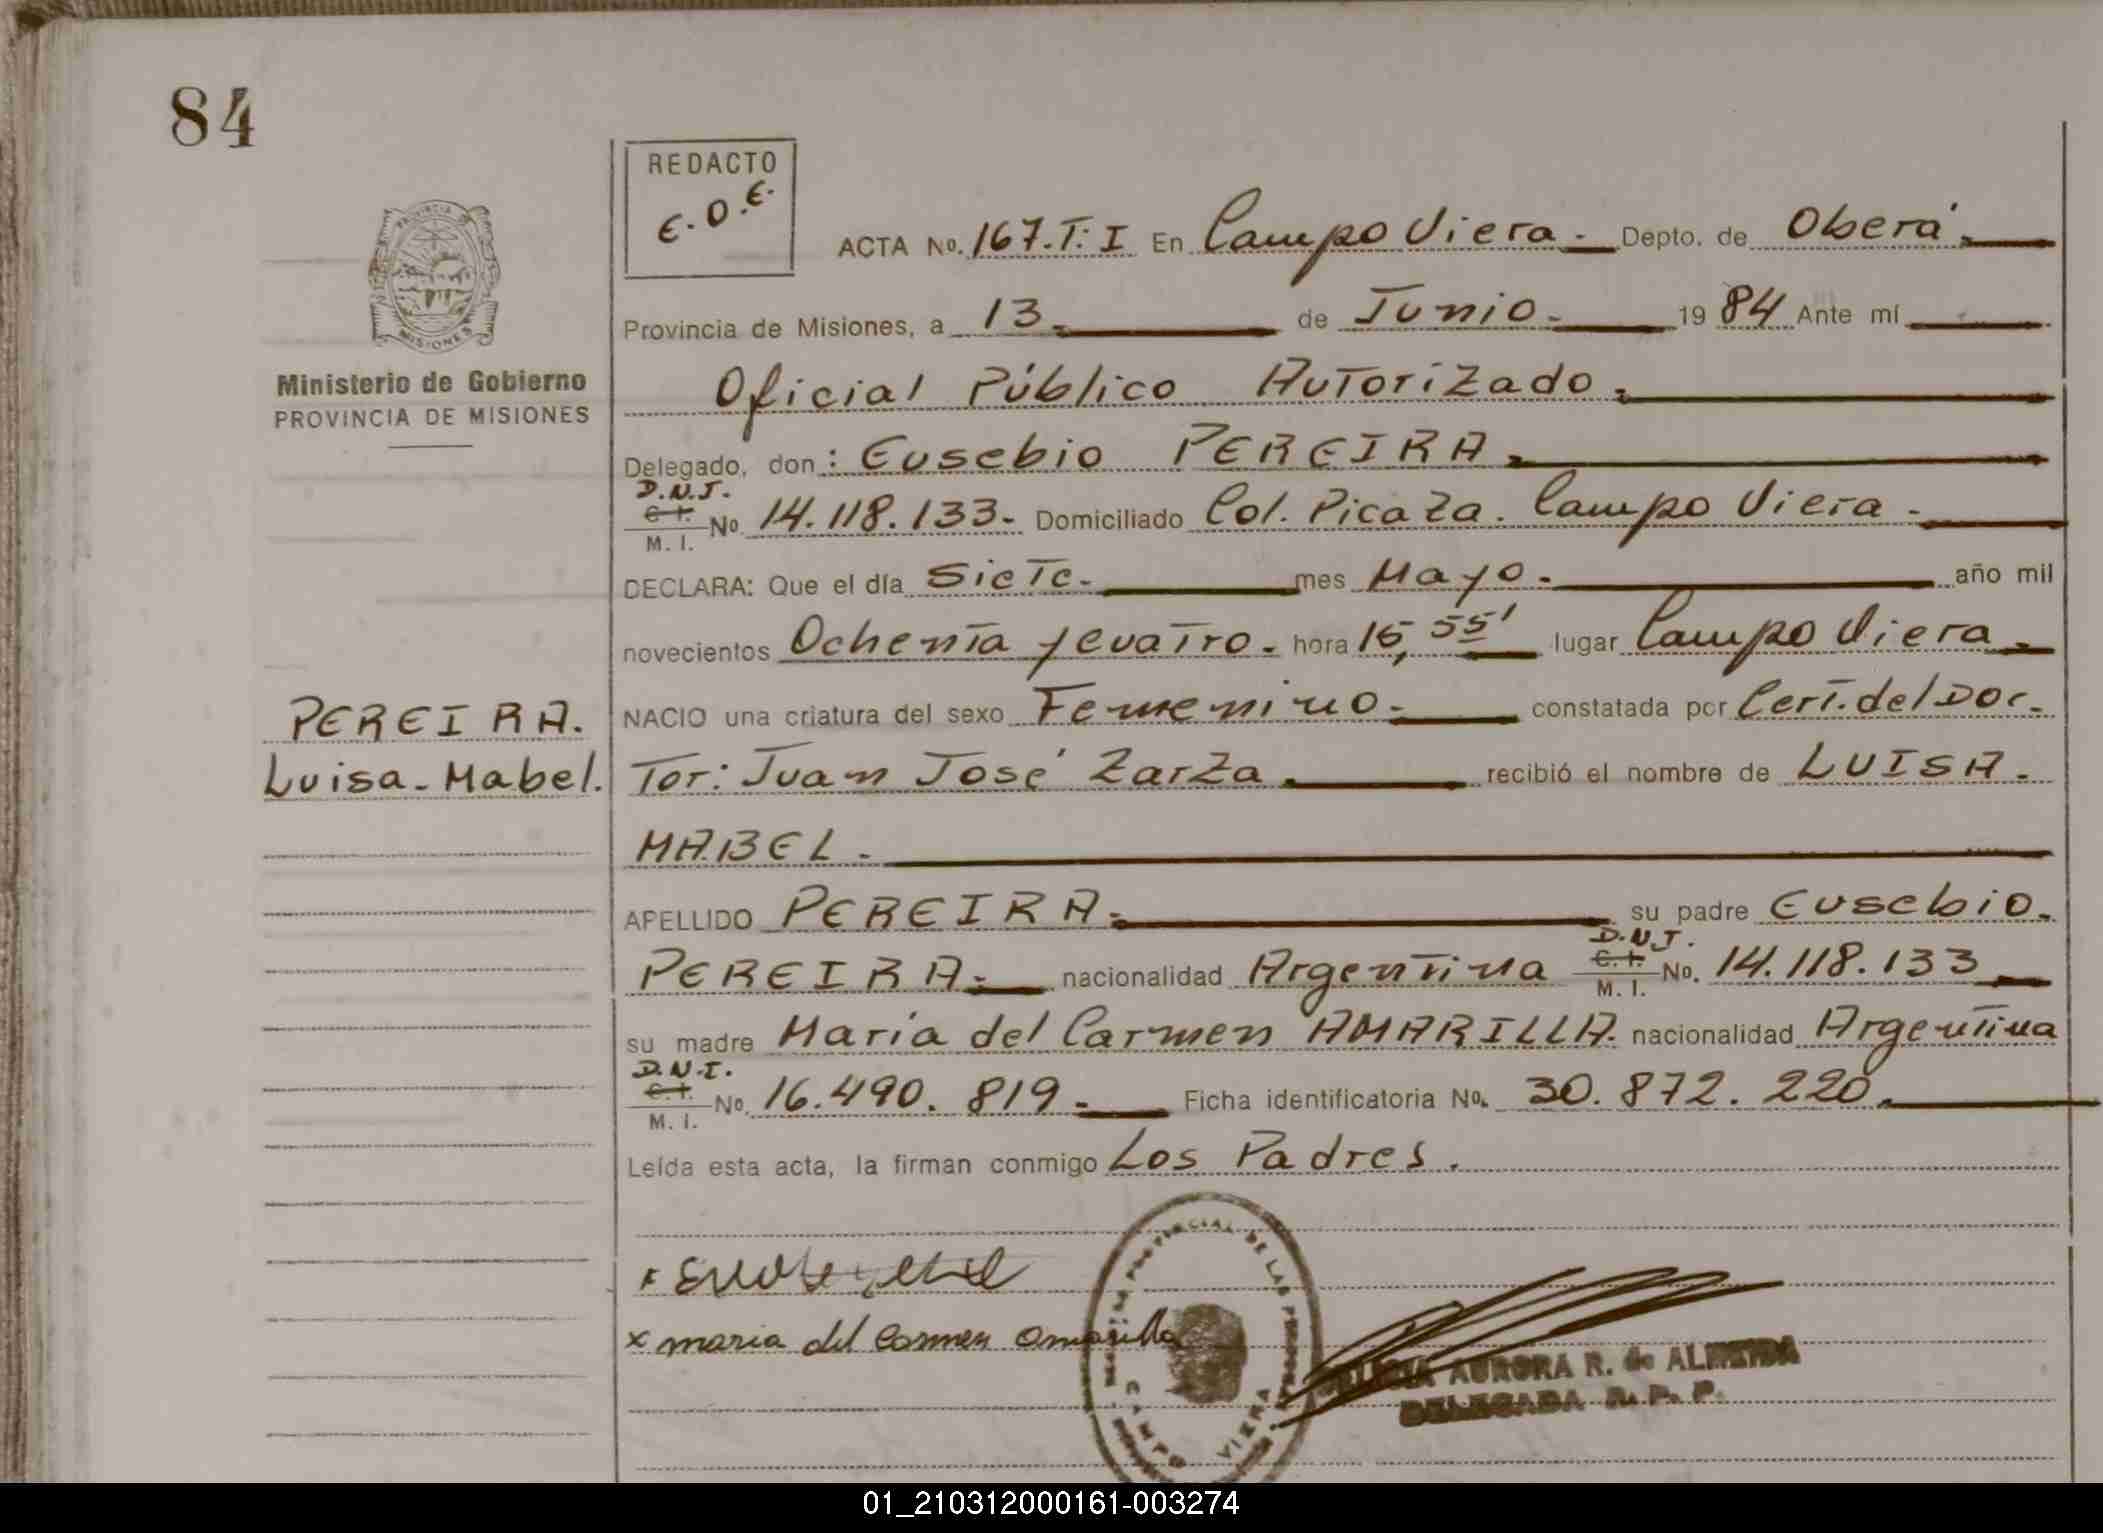 84
REDACTO
E.O.E.
ACTA No. 167.T: I En Campo Viera.- Depto. de Oberá.-
PROVINCIA DE
MISIONES
Provincia de Misiones, a 13.- de Junio.- 1984 Ante mí
Ministerio de Gobierno
PROVINCIA DE MISIONES
Oficial Público Autorizado.-
Delegado, don: Eusebio PEREIRA.-
D.N.I.
C. I. No. 14.118.133.- Domiciliado Col. Picaza. Campo Viera.-
M. I.
DECLARA: Que el día Siete.- mes Mayo.- año mil
novecientos Ochenta y cuatro.- hora 15,55' lugar Campo Viera.-
PEREIRA.
NACIO una criatura del sexo Femenino.- constatada por Cert. del Doc-
Luisa-Mabel.
Tor: Juan José Zarza.- recibió el nombre de LUISA-
MABEL.-
APELLIDO PEREIRA.- su padre Eusebio.
D.N.I.
PEREIRA.- nacionalidad Argentina C. I. No. 14.118.133.-
M. I.
su madre María del Carmen AMARILLA. nacionalidad Argentina
D.N.I.
C. I. No. 16.490.819.- Ficha identificatoria No. 30.872.220.-
M. I.
Leída esta acta, la firman conmigo Los Padres.
x maria del Carmen Amarilla
PROVINCIAL DE LAS
CAMPO VIERA
AURORA R. de ALMEIDA
DELEGADA R. P. P.
01_210312000161-003274